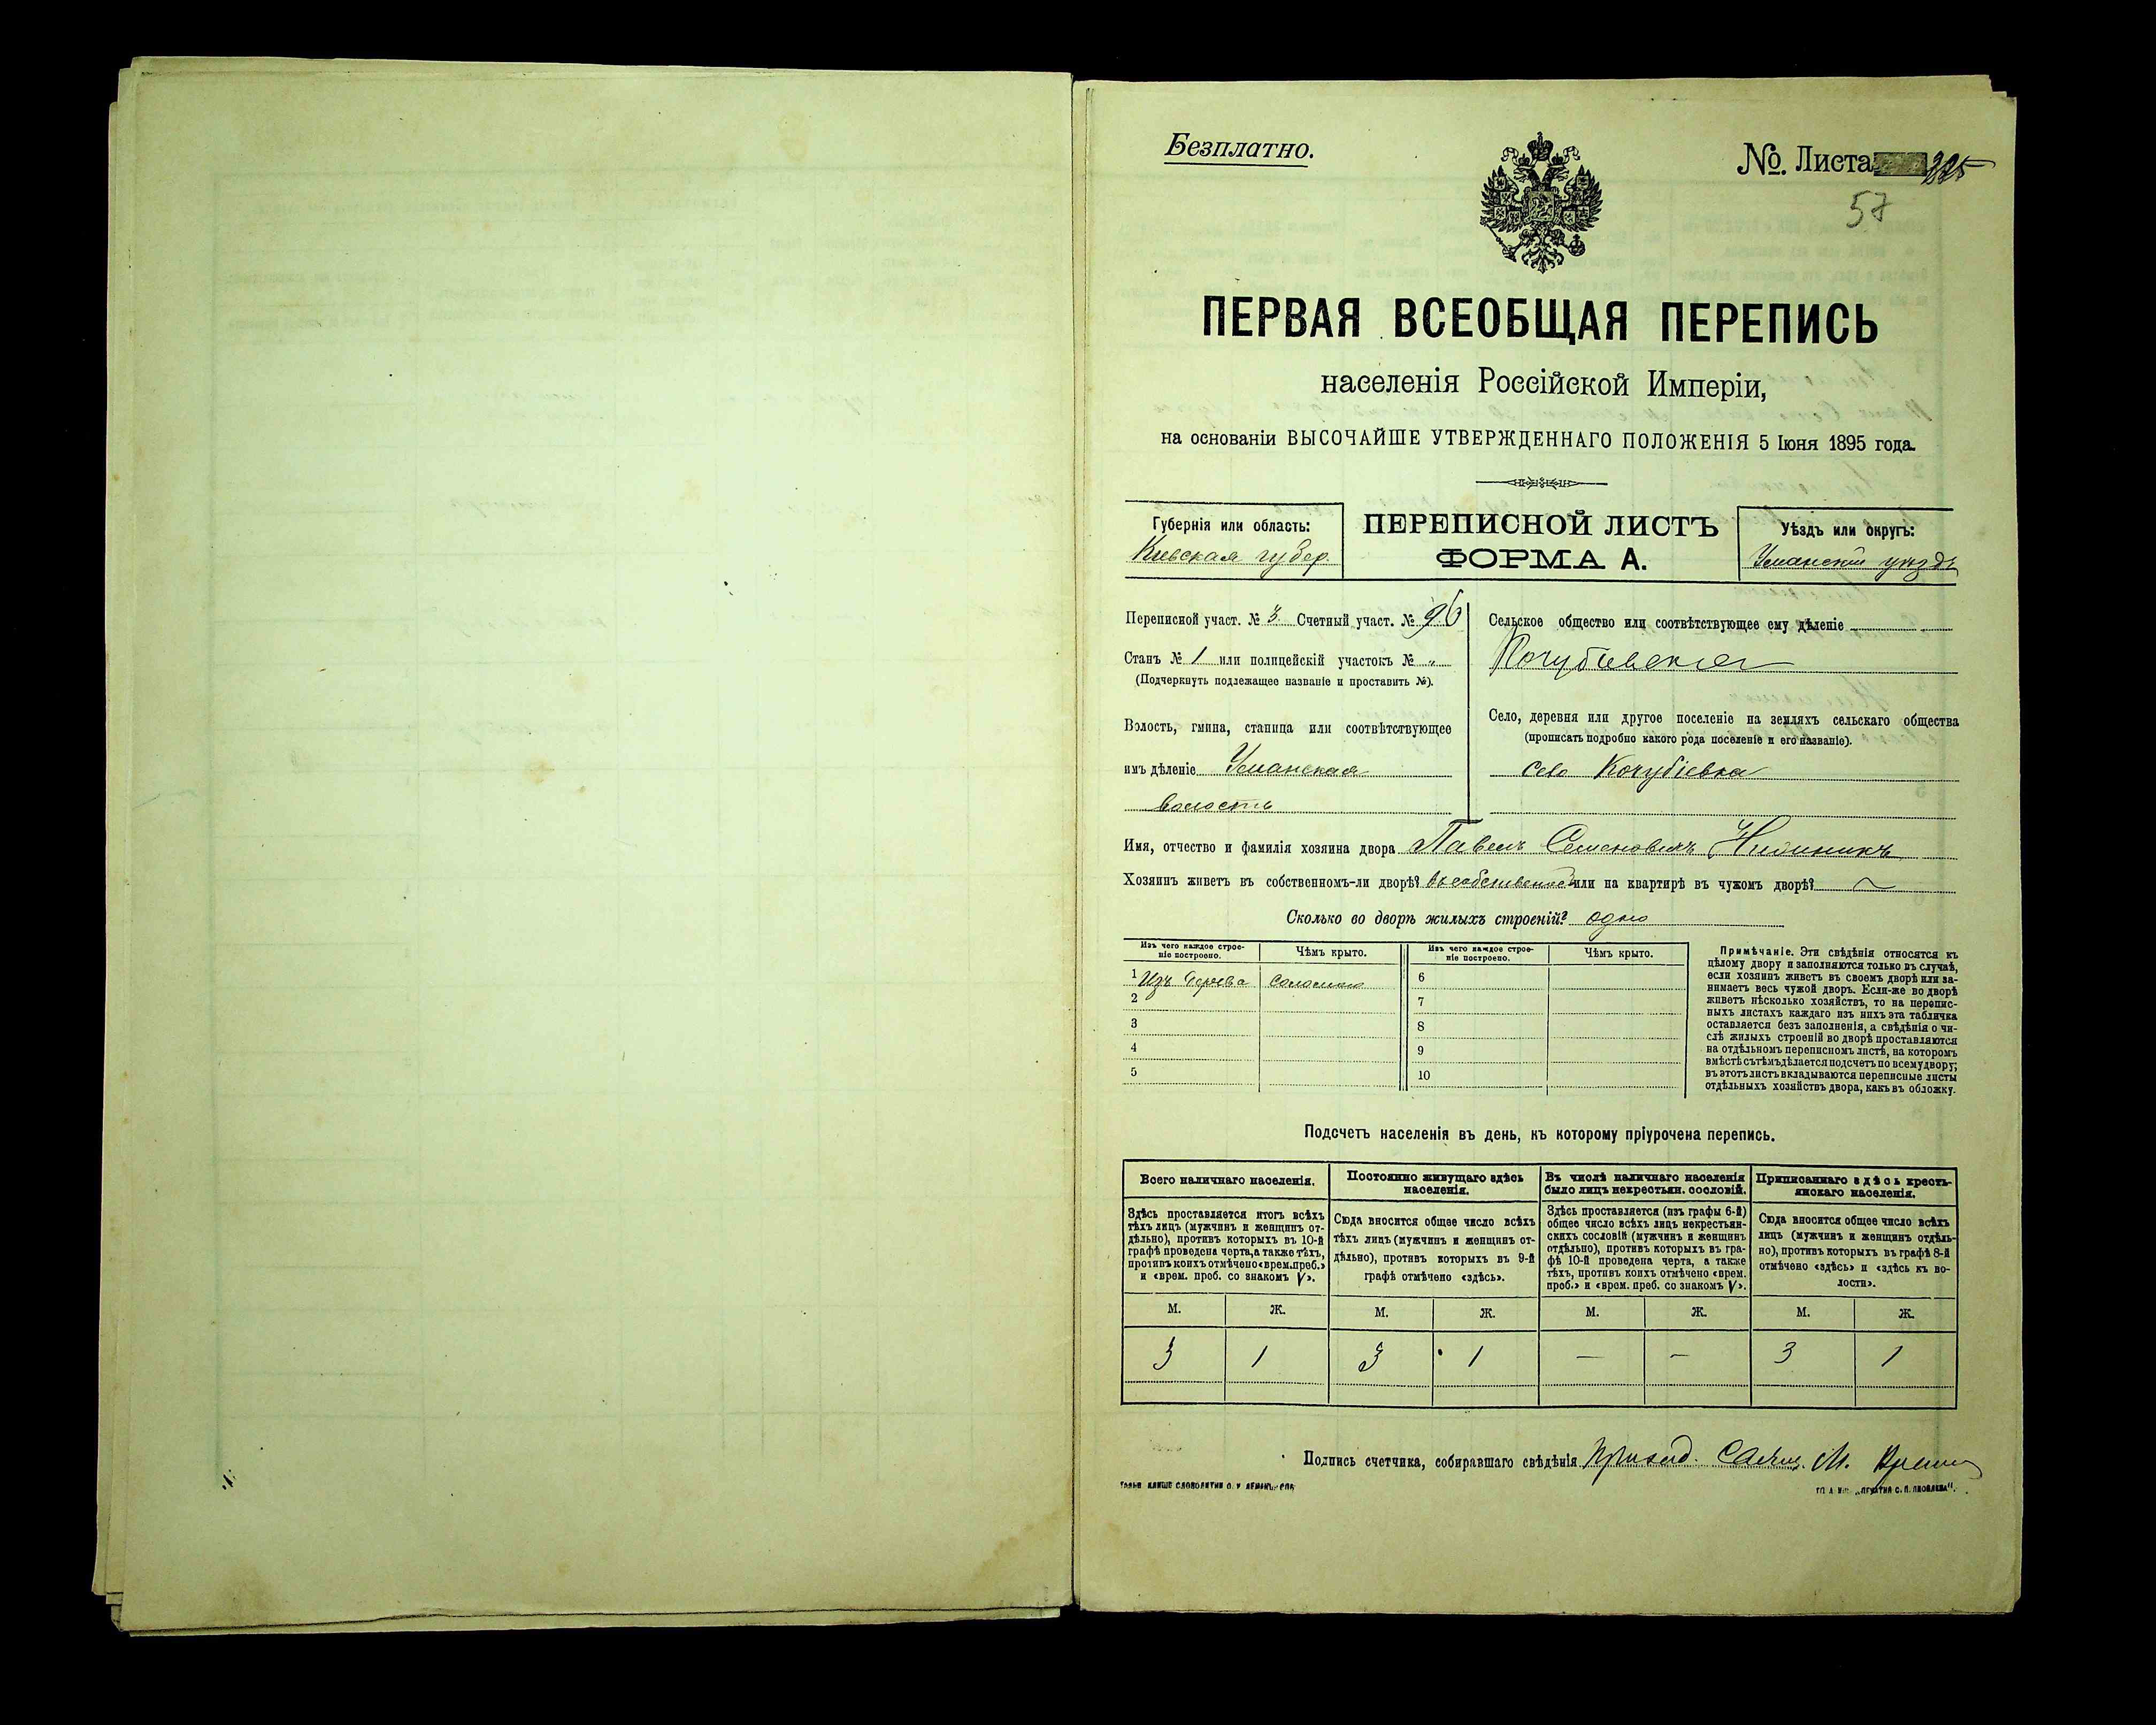 Безплатно.
№. Листа 225
57
ПЕРВАЯ ВСЕОБЩАЯ ПЕРЕПИСЬ
населенія Россійской Имперіи,
на основаніи ВЫСОЧАЙШЕ УТВЕРЖДЕННАГО ПОЛОЖЕНІЯ 5 Іюня 1895 года.
Губернія или область:
Кіевская губер.
ПЕРЕПИСНОЙ ЛИСТЪ
ФОРМА А.
Уѣздъ или округъ:
Уманскій уѣздъ
Переписной участ. № 3. Счетный участ. № 96
Станъ № 1 или полицейскій участокъ № „
(Подчеркнуть подлежащее названіе и проставить №).
Волость, гмина, станица или соотвѣтствующее
имъ дѣленіе Уманская
волость
Сельское общество или соотвѣтствующее ему дѣленіе
Кочубіевское
Село, деревня или другое поселеніе на земляхъ сельскаго общества
(прописать подробно какого рода поселеніе и его названіе).
село Кочубіевка
Имя, отчество и фамилія хозяина двора Павелъ Семеновичъ
Хозяинъ живетъ въ собственномъ-ли дворѣ? въ собственномъ или на квартирѣ въ чужомъ дворѣ?
Сколько во дворѣ жилыхъ строеній? одно
Изъ чего каждое строе-
ніе построено.
Чѣмъ крыто.
Изъ чего каждое строе-
ніе построено.
Чѣмъ крыто.
1 Изъ дерева соломою
2
3
4
5
6
7
8
9
10
Примѣчаніе. Эти свѣдѣнія относятся къ
цѣлому двору и заполняются только въ случаѣ,
если хозяинъ живетъ въ своемъ дворѣ или за-
нимаетъ весь чужой дворъ. Если-же во дворѣ
живетъ нѣсколько хозяйствъ, то на перепис-
ныхъ листахъ каждаго изъ нихъ эта табличка
оставляется безъ заполненія, а свѣдѣнія о чи-
слѣ жилыхъ строеній во дворѣ проставляются
на отдѣльномъ переписномъ листѣ, на которомъ
вмѣстѣ съ тѣмъ дѣлается подсчетъ по всему двору;
въ этотъ листъ вкладываются переписные листы
отдѣльныхъ хозяйствъ двора, какъ въ обложку.
Подсчетъ населенія въ день, къ которому пріурочена перепись.
Всего наличнаго населенія.
Здѣсь проставляется итогъ всѣхъ
тѣхъ лицъ (мужчинъ и женщинъ от-
дѣльно), противъ которыхъ въ 10-й
графѣ проведена черта, а также тѣхъ,
противъ коихъ отмѣчено «врем. проб.»
и «врем. проб. со знакомъ V».
Постоянно живущаго здѣсь
населенія.
Сюда вносится общее число всѣхъ
тѣхъ лицъ (мужчинъ и женщинъ от-
дѣльно), противъ которыхъ въ 9-й
графѣ отмѣчено «здѣсь».
Въ числѣ наличнаго населенія
было лицъ некрестьян. сословій.
Здѣсь проставляется (изъ графы 6-й)
общее число всѣхъ лицъ некрестьян-
скихъ сословій (мужчинъ и женщинъ
отдѣльно), противъ которыхъ въ гра-
фѣ 10-й проведена черта, а также
тѣхъ, противъ коихъ отмѣчено «врем.
проб.» и «врем. проб. со знакомъ V».
Приписаннаго здѣсь кресть-
янскаго населенія.
Сюда вносится общее число всѣхъ
лицъ (мужчинъ и женщинъ отдѣль-
но), противъ которыхъ въ графѣ 8-й
отмѣчено «здѣсь» и «здѣсь къ во-
лости».
М. Ж. М. Ж. М. Ж. М. Ж.
3 1 3 1 — — 3 1
Подпись счетчика, собиравшаго свѣдѣнія М.